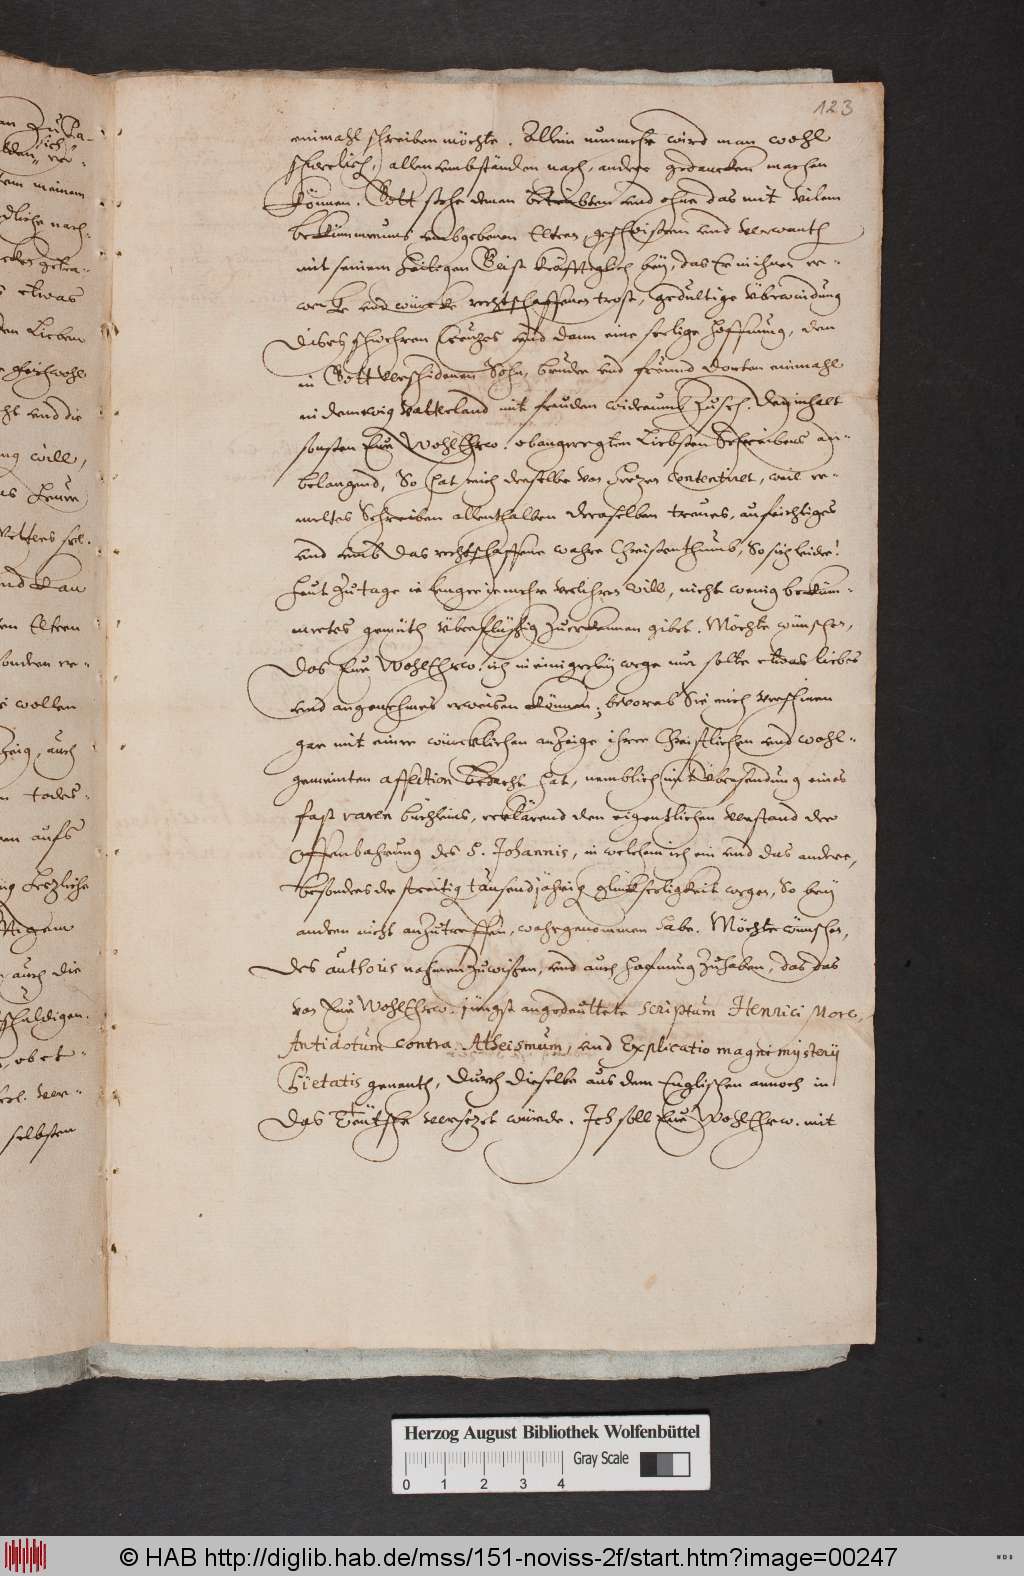 123
einmahl schreiben möchte. Allein nunmehr wird man wohl
schwerlich, allen umbständen nach, andere gedancken machen
können. Gott stehe denen betrübten und ohne das mit vilem
bekümmernus umbgebenen Eltern, geschwistern und verwanth
mit seinem heiligen Geist kräfftiglich bey, das Er in ihnen er-
wecke und würcke rechtschaffenen trost, gedultige überwindung
dises schwehren Creützes und dann eine seelige hoffnung, den
in Gott verschidenen Sohn, bruder und freünd dorten einmahl
in dem ewig Vatterland mit freuden widerumb zusehen. Den inhalt
sonsten Eur WohlEhrw. obangeregten Liebsten Schreibens an-
belangend, So hat mich derselbe von Hertzen contentiret, weil er-
meltes Schreiben allenthalben deroselben treues, aufrichtiges
und umb das rechtschaffene wahre Christenthumb, So sich leider!
heut Zutage ie lenger ie mehr verliehren will, nicht wenig beküm-
mertes gemüth überflüßig zuerkennen gibet. Möchte wünschen,
das Eur WohlEhrw. ich in einigerley wege nur solte etwas liebes
und angenehmes erweisen können; bevorab Sie mich verschinen
gar mit einer würcklichen anzeige ihrer Christlichen und wohl-
gemeinten affection bedacht hat, nemblich mit übersendung eines
fast raren büchleins, erklärend den eigentlichen verstand der
Offenbahrung des S. Johannis, in welchem ich ein und das andere,
besonders der streitig tausendjährig glückseeligkeit wegen, So bey
andren nicht anzutreffen, wahrgenommen habe. Möchte wünschen,
des authoris nahmen zuwißen, und auch hoffnung zuhaben, das das
von Eur WohlEhrw. jüngst angedeuttete scriptum Henrici More,
Antidotum contra Atheismum, und Explicatio magni mysterij
Pietatis genanth, durch dieselbe aus dem Englischen annoch in
das Teütsche versetzet würde. Ich soll Eur WohlEhrw. mit
Herzog August Bibliothek Wolfenbüttel
Gray Scale
0 1 2 3 4
© HAB http://diglib.hab.de/mss/151-noviss-2f/start.htm?image=00247